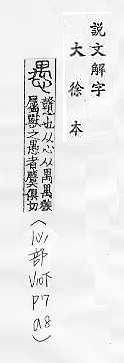 說文解字
大徐本
愚
戇也从心从禺禺猴
屬獸之愚者麌俱切
(心部
V10下
P7
a8)